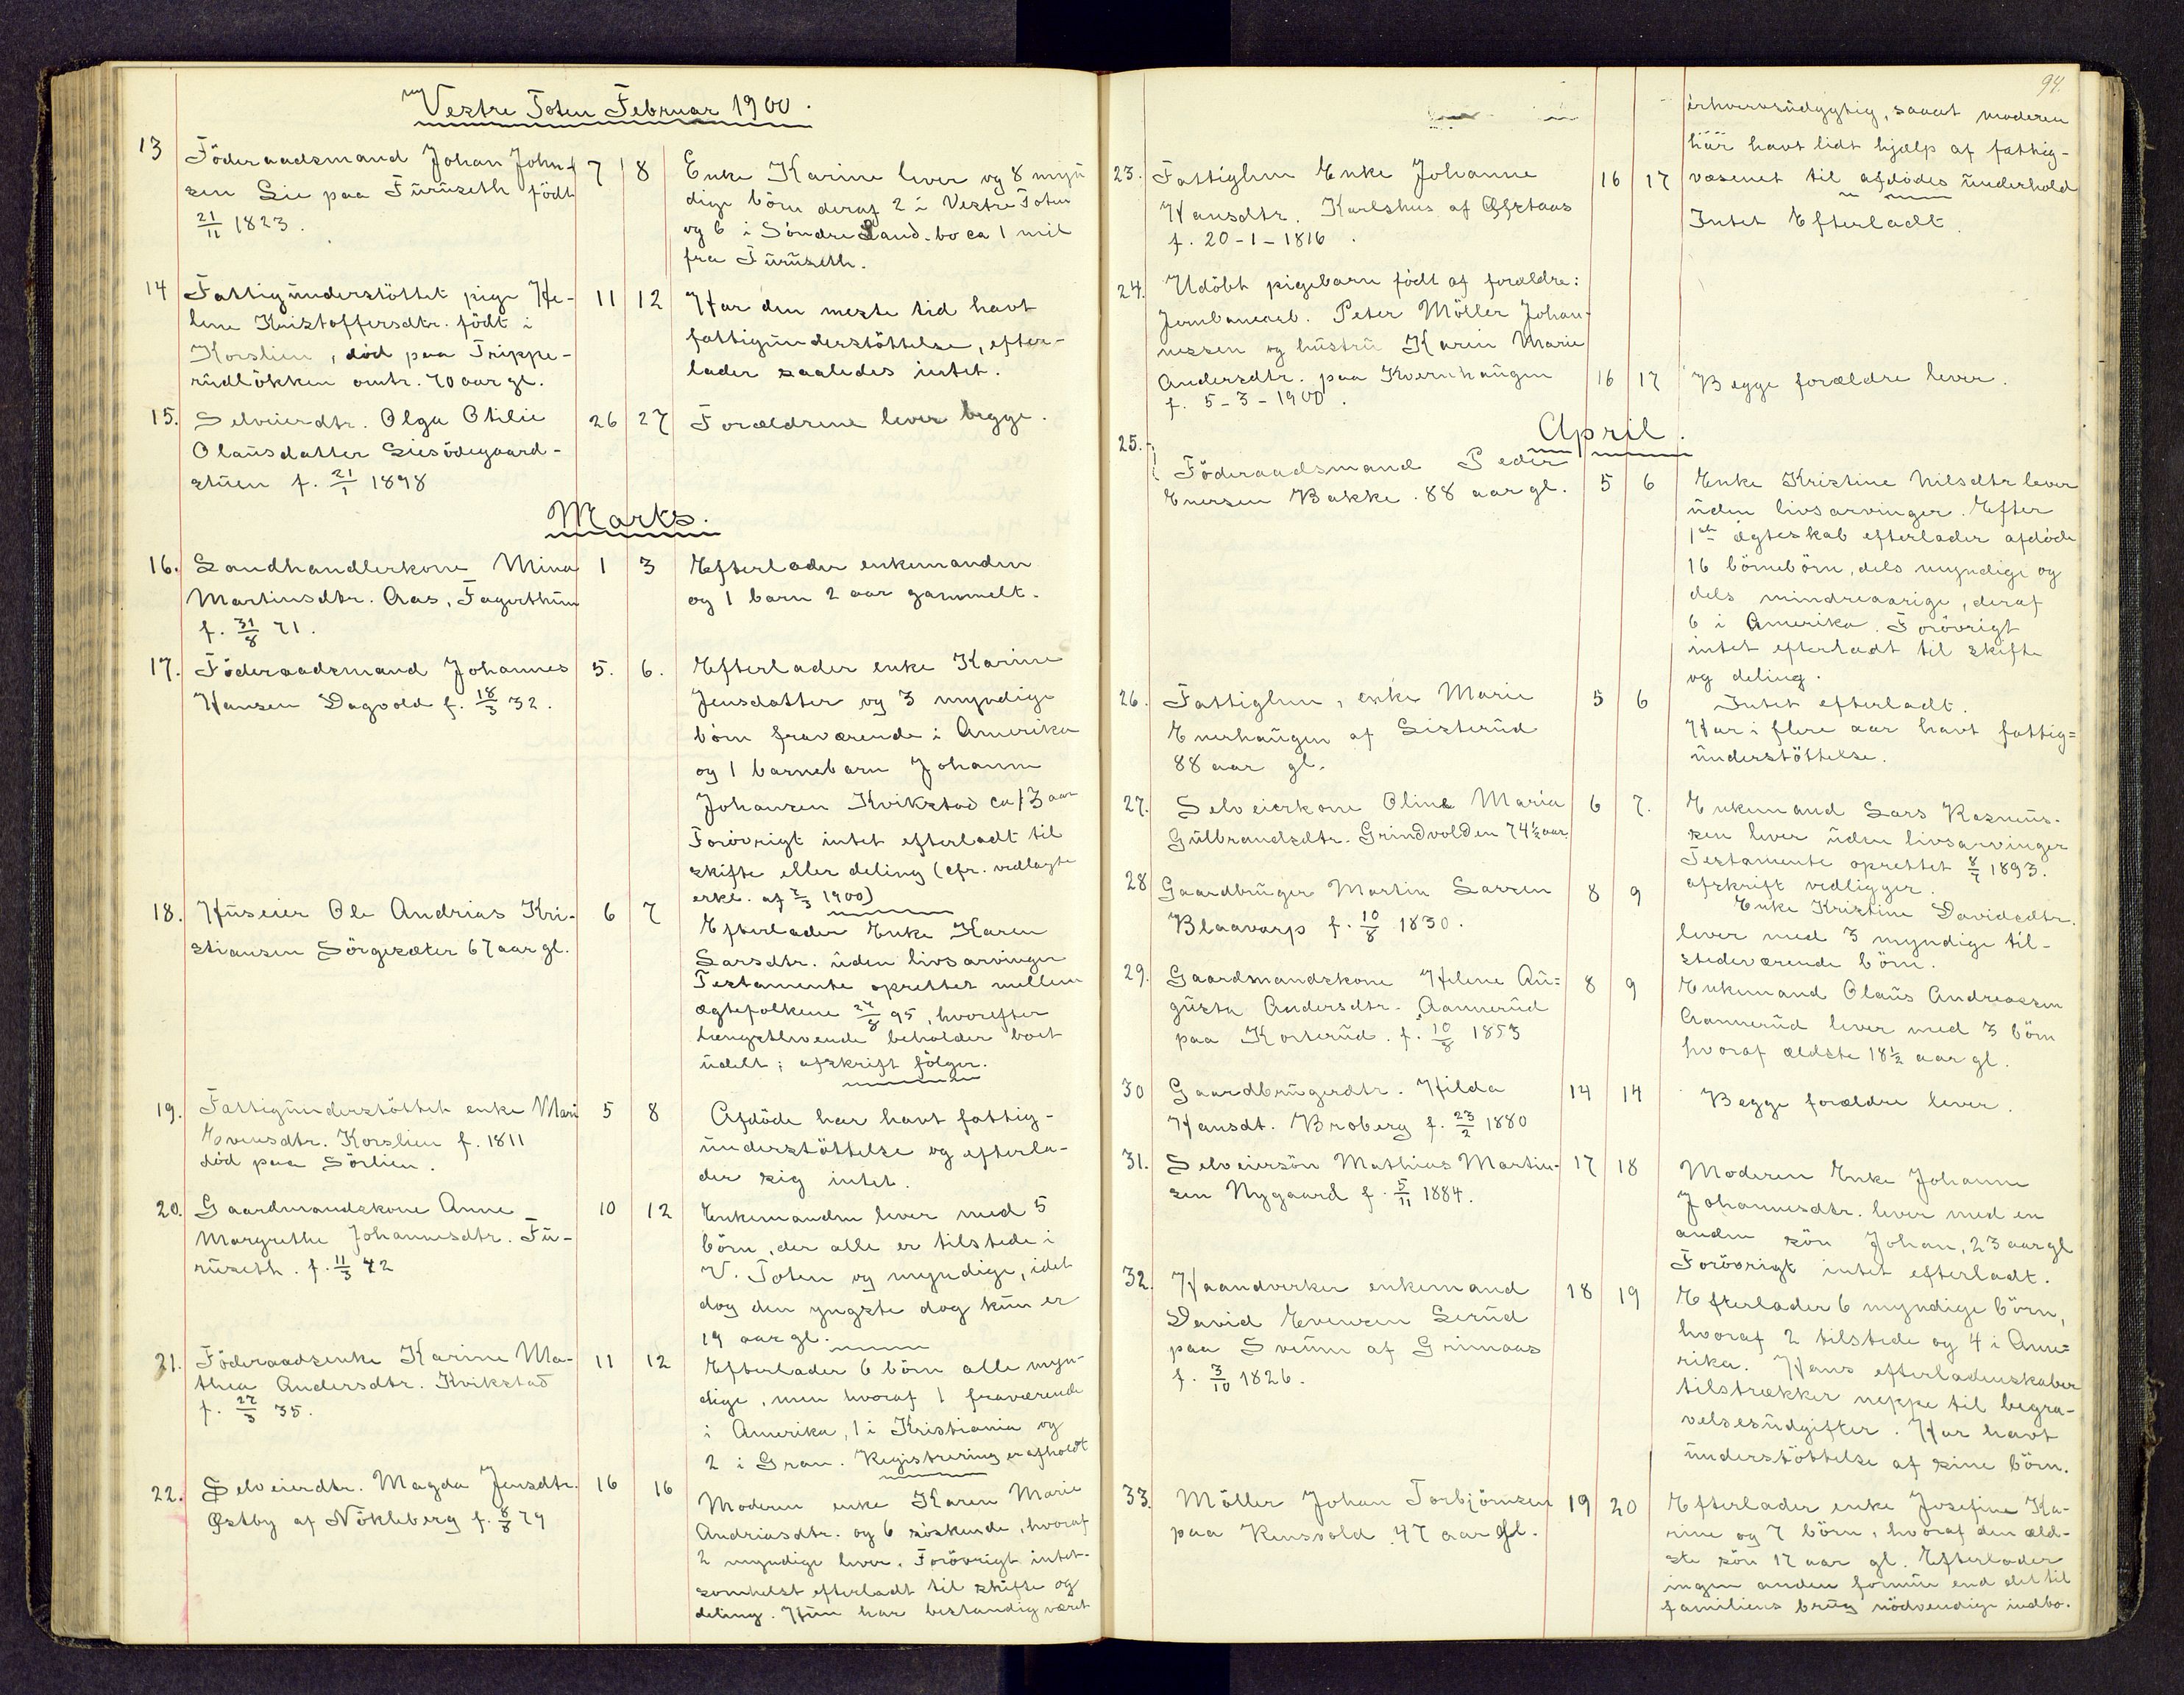 Vestre Toten Februar 1900.
13 Föderaadsmand Johan John-
sen Lie paa Furuseth födt
21/11 1823.
7 8
Enke Karine lever og 8 myn
dige börn deraf 2 i Vestre Toten
og 6 i Söndre Land. bo ca 1 mil
fra Furuseth.
14 Fattigunderstöttet pige He-
lene Kristoffersdtr. födt i
Korslien, död paa Trippe-
rudlökken omtr. 70 aar gl.
11 12
Har den meste tid havt
fattigunderstöttelse, efter-
lader saaledes intet.
15. Selveierdtr. Olga Otilie
Olausdatter Liesödegaard-
stuen f. 21/1 1898
26 27
Forældrene lever begge.
Marts.
16. Landhandlerkone Mina
Martinsdtr. Aas, Fagerthun
f. 31/8 71.
1 3
Efterlader enkemanden
og 1 barn 2 aar gammelt.
17. Föderaadsmand Johannes
Hansen Dagvold f. 18/3 32.
5. 6.
Efterlader enke Karine
Jensdatter og 3 myndige
börn fraværende i Amerika
og 1 barnebarn Johanne
Johansen Kvikstad ca 13 aar
Forövrigt intet efterladt til
skifte eller deling (cfr. vedlagte
erkl. af 7/3 1900)
18. Huseier Ole Andrias Kri-
stiansen Sörgesæter 67 aar gl.
6 7
Efterlader Enke Karen
Larsdtr. uden livsarvinger
Testamente oprettet mellem
ægtefolkene 24/8 95, hvorefter
længstlevende beholder boet
udelt; afskrift fölger.
19. Fattigunderstöttet enke Mari
Evensdtr. Korslien f. 1811
död paa Sörlien.
5 8
Afdöde har havt fattig-
understöttelse og efterla-
der sig intet.
20. Gaardmandskone Anne
Margrethe Johannesdtr. Fu-
ruseth. f. 11/3 42
10 12
Enkemanden lever med 5
börn, der alle er tilstede i
V. Toten og myndige, idet
dog den yngste dog kun er
19 aar gl.
21. Föderaadsenke Karine Ma-
thea Andersdtr. Kvikstad
f. 27/3 35.
11 12
Efterlader 6 börn alle myn-
dige, men hvoraf 1 fraværende
i Amerika, 1 i Kristiania og
2 i Gran. Registrering er afholdt
22. Selveierdtr. Magda Jensdtr.
Østby af Nökleberg f. 8/8 79
16 16
Moderen enke Karen Marie
Andriasdtr. og 6 söskende, hvoraf
2 myndige lever. Forövrigt intet-
somhelst efterladt til skifte og
deling. Hun har bestandig været
94.
erhvervsudygtig, saaat moderen
här havt lidt hjælp af fattig-
væsenet til afdödes underhold
23. Fattiglem Enke Johanne
Hansdtr. Karlshus af Ofstaas
f. 20-1-1816.
16 17
Intet Efterladt.
24. Udöbt pigebarn födt af forældre:
Jernbanearb. Peter Möller Johan-
nessen og hustru Karen Marie
Andersdtr. paa Kvernhaugen
f. 5-3-1900.
16 17
Begge forældre lever.
April.
25. Föderaadsmand Peder
Enersen Bakke. 88 aar gl.
5 6
Enke Kristine Nilsdtr lever
uden livsarvinger. Efter
1ste ægteskab efterlader afdöde
16 börnebörn, dels myndige og
dels mindreaarige, deraf
6 i Amerika. Forövrigt
intet efterladt til skifte
og deling.
26. Fattiglem, enke Marie
Enerhaugen af Listerud
88 aar gl.
5 6
Intet efterladt.
Har i flere aar havt fattig=
understöttelse.
27. Selveierkone Oline Maria
Gulbrandsdtr. Grindvolden 74½ aar
6 7.
Enkemand Lars Rasmus-
sen lever uden livsarvinger
Testamente oprettet 8/7 1893.
afskrift vedligger.
28 Gaardbruger Martin Larsen
Blaavarp f. 10/8 1830.
8 9
Enke Kristine Davidsdtr.
lever med 3 myndige til-
stedeværende börn.
29. Gaardmandskone Helene Au=
gusta Andersdtr. Aannerud
paa Korterud. f. 10/8 1853
8 9
Enkemand Olaus Andreassen
Aannerud lever med 3 börn
hvoraf ældste 18½ aar gl.
30 Gaardbrugerdtr. Hilda
Hansdt. Broberg f. 23/2 1880
14 14
Begge forældre lever.
31. Selveiersön Mathias Martin-
sen Nygaard f. 5/11 1884.
17 18
Moderen Enke Johanne
Johannesdtr. lever med en
anden sön Johan, 23 aar gl
Forövrigt intet efterladt.
32. Haandverker enkemand
David Evensen Lerud
paa Sveum af Grimaas
f. 3/10 1826.
18 19
Efterlader 6 myndige börn,
hvoraf 2 tilstede og 4 i Ame=
rika. Hans efterladenskaber
tilstrækker neppe til begra-
velsesudgifter. Har havt
understöttelse af sine börn.
33. Möller Johan Torbjörnsen
paa Kensvold. 47 aar gl.
19 20
Efterlader enke Josefine Ka-
rine og 7 börn, hvoraf den æld-
ste sön 17 aar gl. Efterlader
ingen anden formue end det til
familiens brug nödvendige indbo.